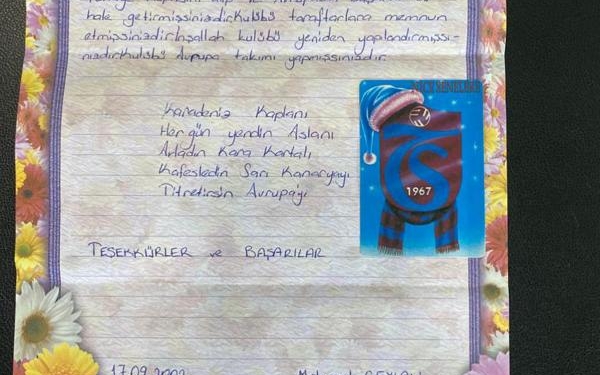 hale getirmişsinizdir.Kulübü taraftarlara memnun
etmişsinizdir.İnşallah kulübü yeniden yapılandırmışsı-
nızdır.Kulübü Avrupa takımı yapmışsınızdır.
Karadeniz Kaplanı
Her gün yendin Aslanı
Avladın Kara Kartalı
Kafesledin Sarı Kanaryayı
Titretirsin Avrupa'yı
1967
TEŞEKKÜRLER ve BAŞARILAR
17.09.2002